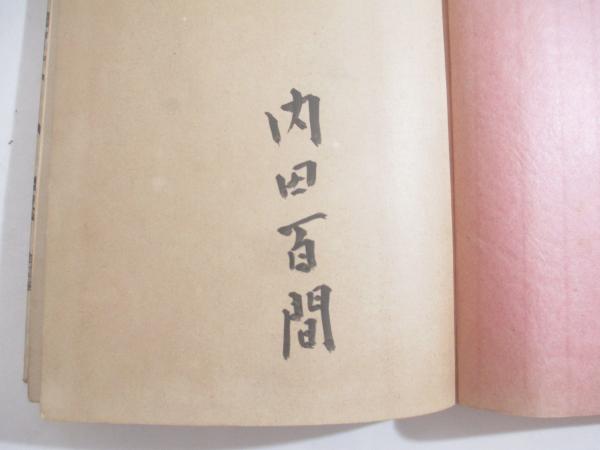 内田百間